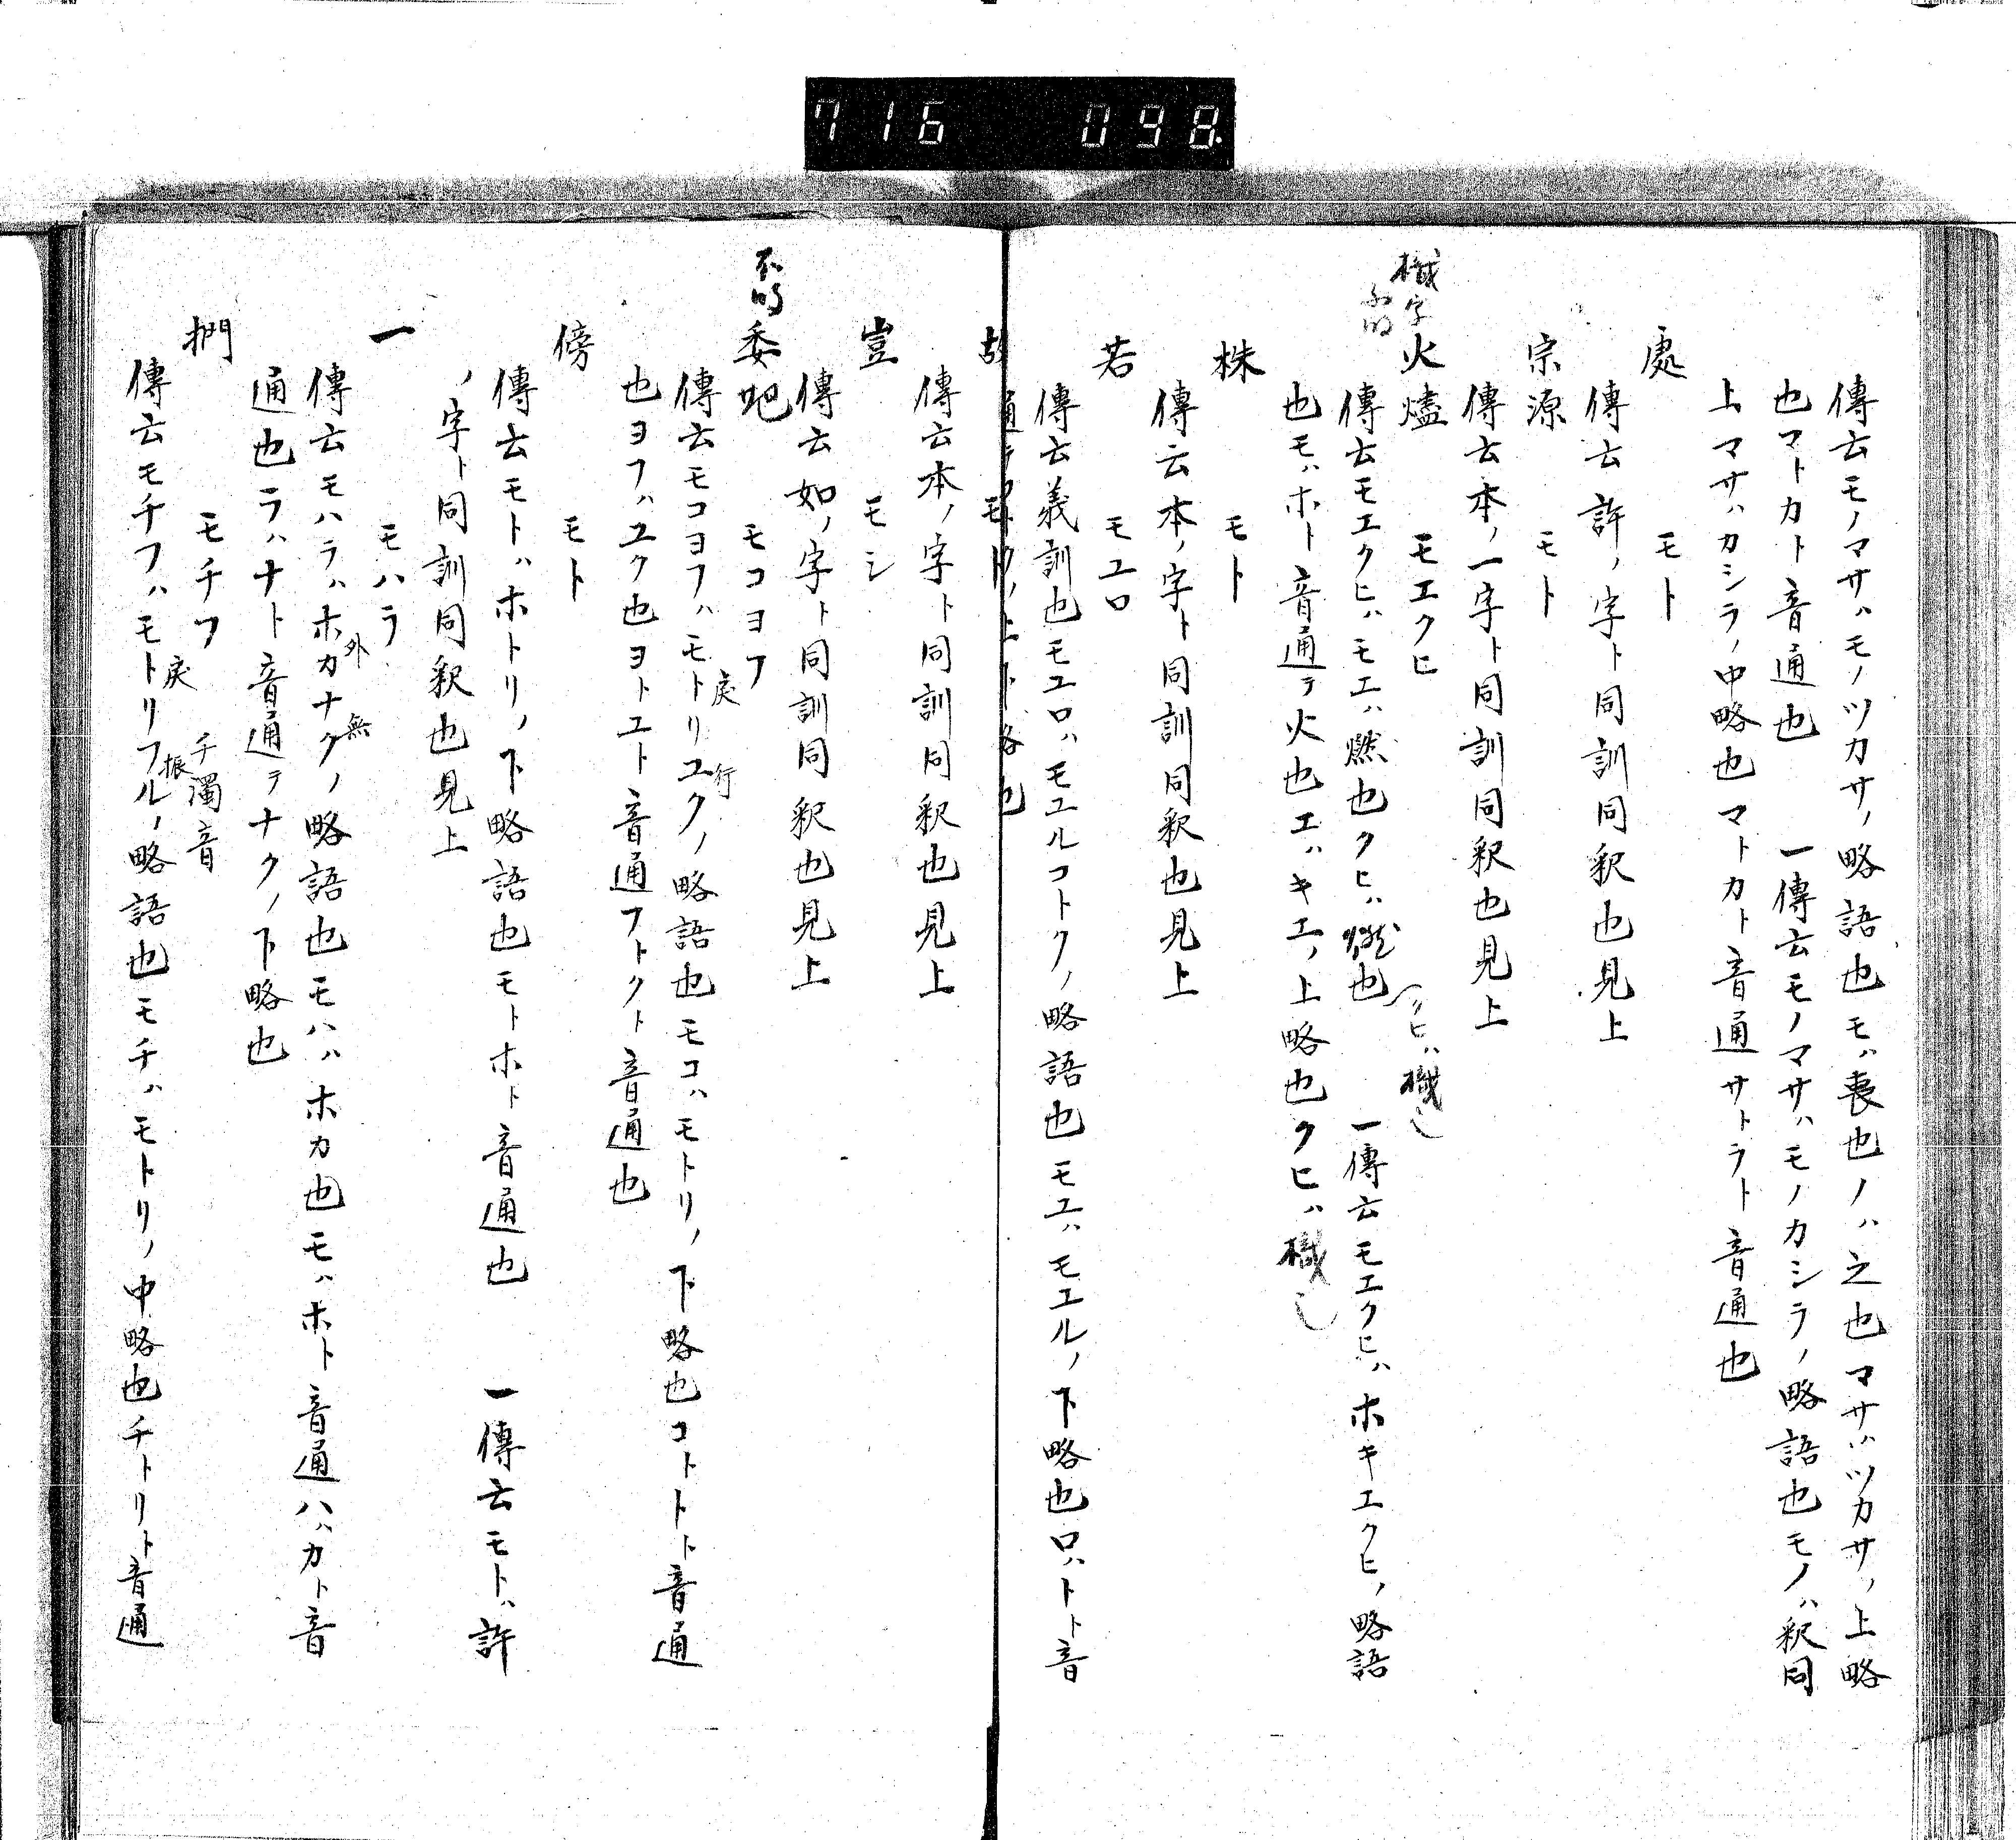 716 098
傳云モノマサハモノツカサノ略語也モハ喪也ノハ之也マサハツカサノ上略
也マトカト音通也 一傳云モノマサハモノカシラノ略語也モノハ釈同
上マサハカシラノ中略也マトカト音通サトラト音通也
處 モト
傳云許ノ字ト同訓同釈也見上
宗源 モト
傳云本ノ一字ト同訓同釈也見上
火燼 モエクヒ
傳云モエクヒハモエハ燃也クヒハ 也 一傳云モエクヒハホキエクヒノ略語
也モハホト音通テ火也エハキエノ上略也クヒハ橶也
株 モト
傳云本ノ字ト同訓同釈也見上
若 モユロ
傳云義訓也モユロハモユルコトクノ略語也モユハモエルノ下略也ロハトト音
故 モト
傳云本ノ字ト同訓同釈也見上
豈 モシ
傳云如ノ字ト同訓同釈也見上
委虵 モコヨフ
傳云モコヨフハモトリユクノ略語也モコハモトリノ下略也コトトト音通
戻 行
也ヨフハユク也ヨトユト音通フトクト音通也
傍 モト
傳云モトハホトリノ下略語也モトホト音通也 一傳云モトハ許
ノ字ト同訓同釈也見上
一 モハラ
傳云モハラハホカナクノ略語也モハハホカ也モハホト音通ハハカト音
外 無
通也ラハナト音通テナクノ下略也
捫 モチフ チ濁音
傳云モチフハモトリフルノ略語也モチハモトリノ中略也チトリト音通
戻 振